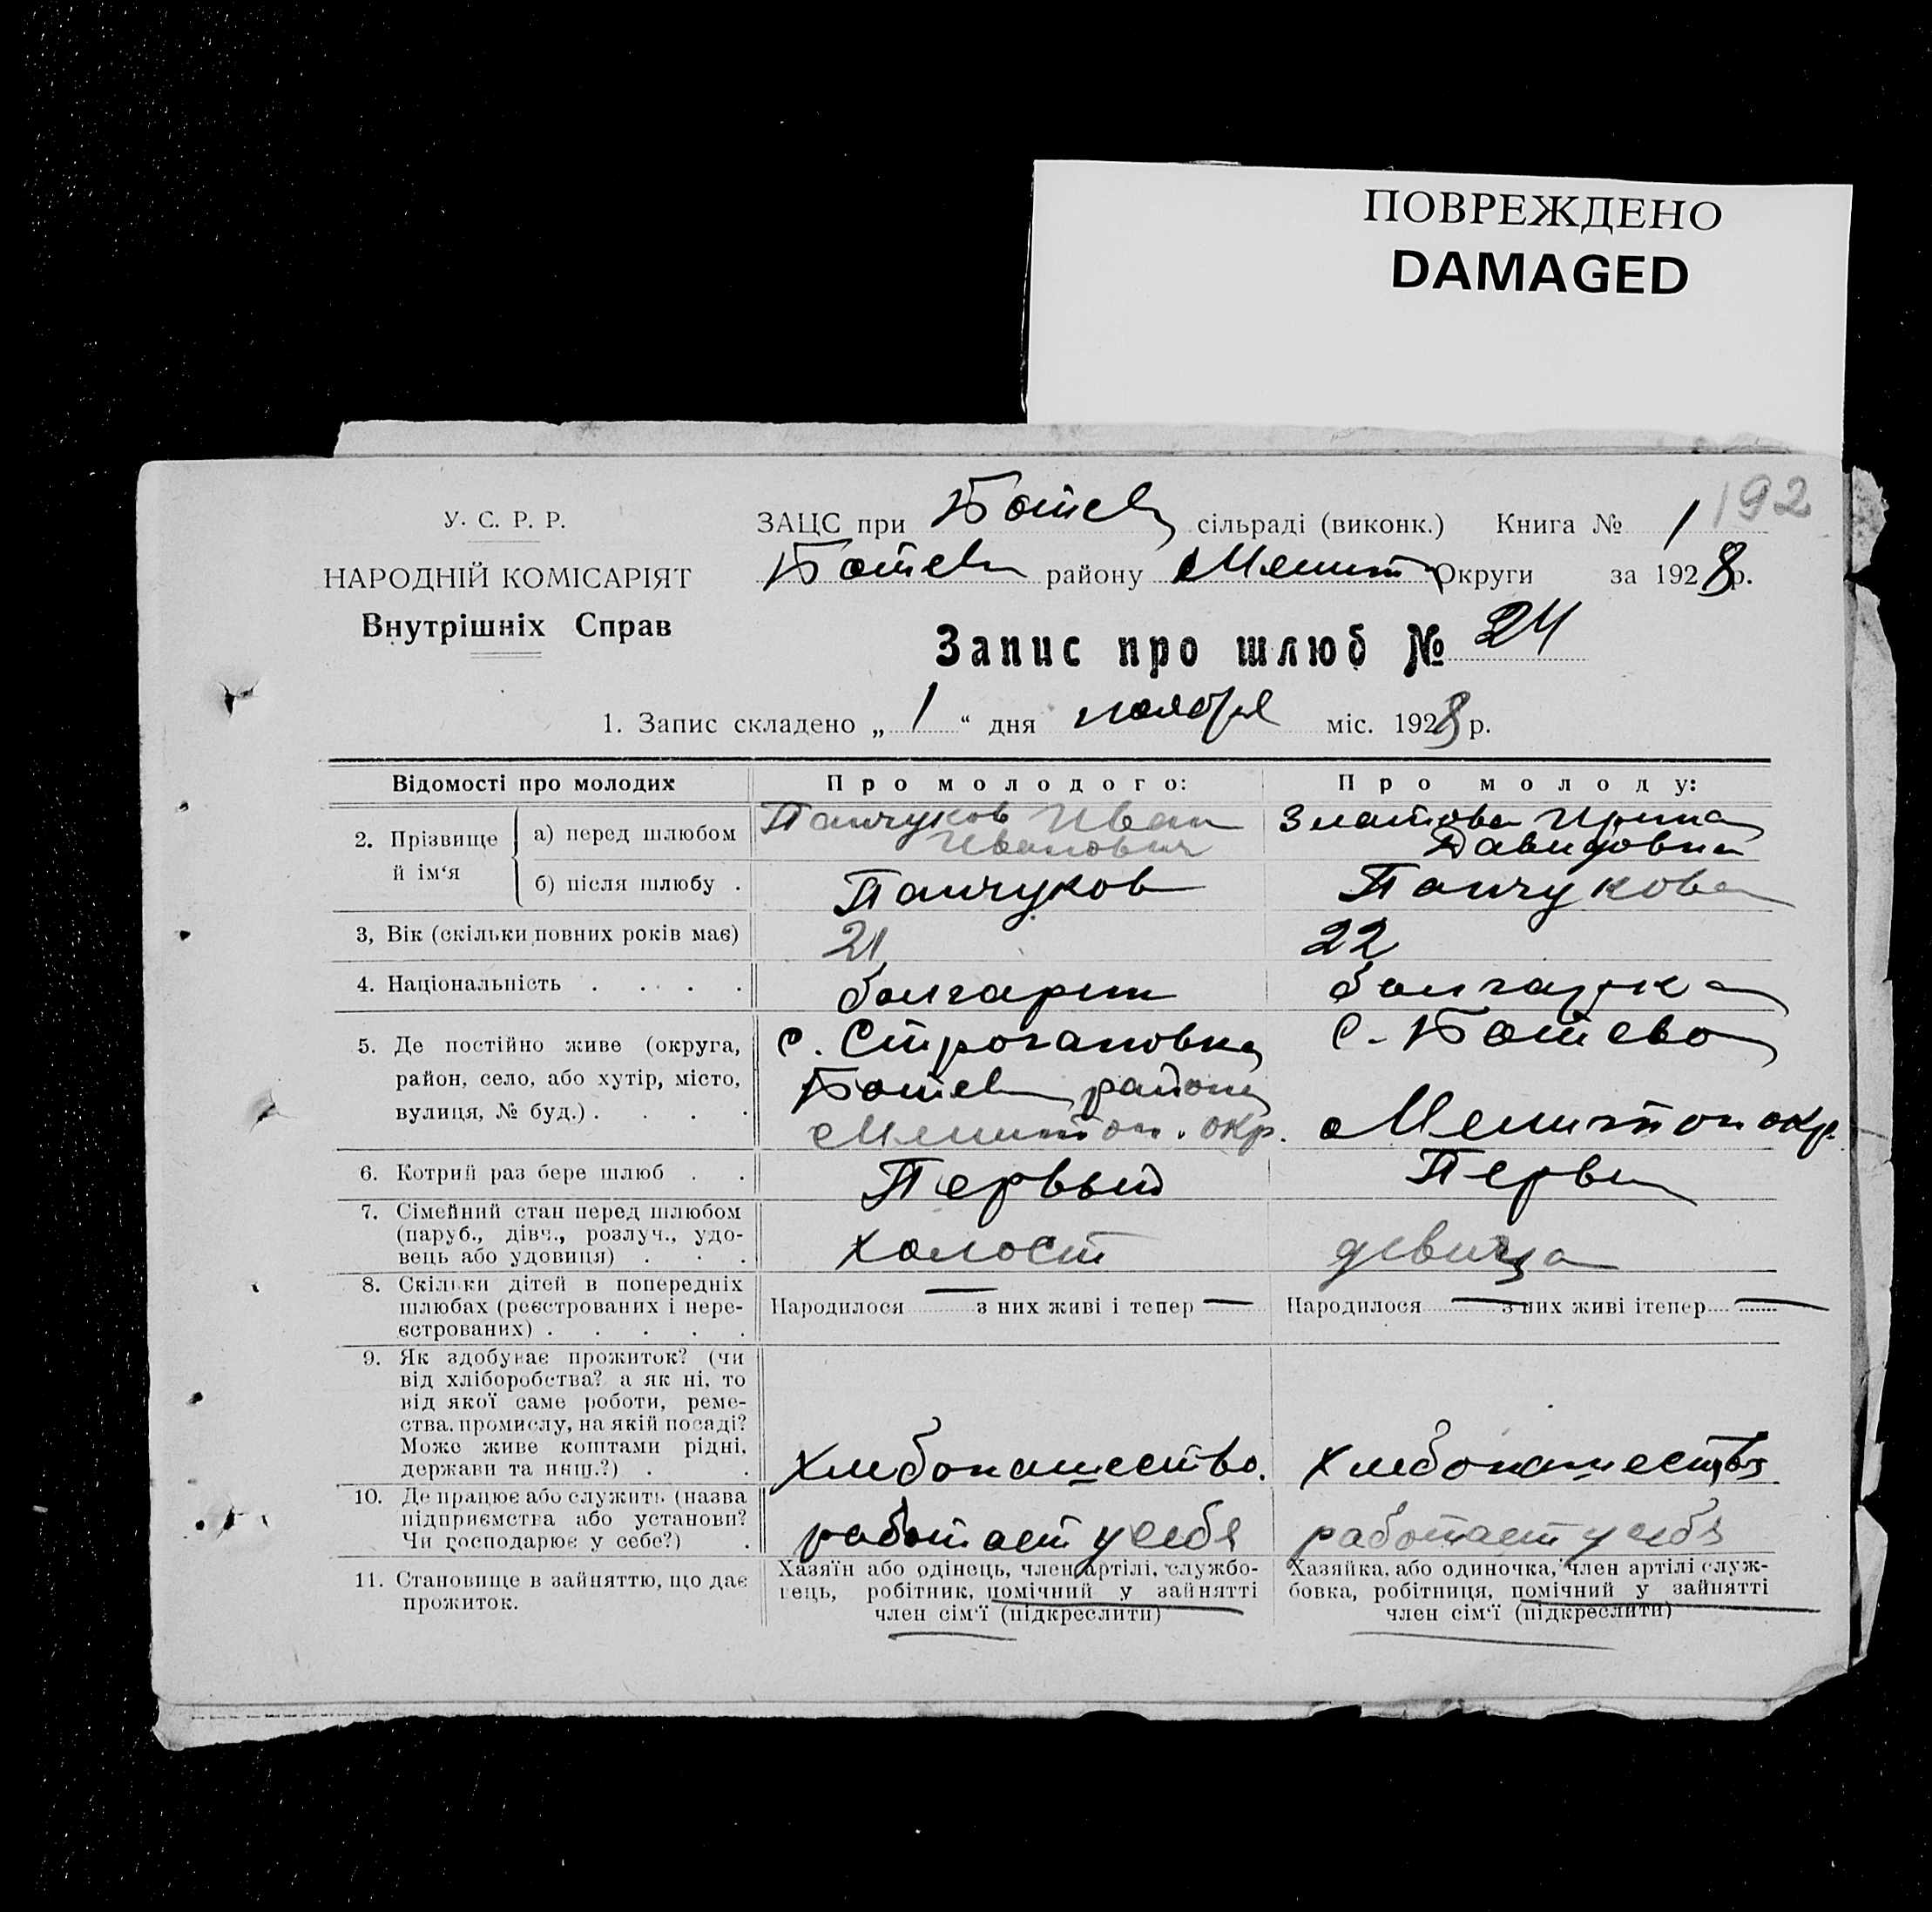 ПОВРЕЖДЕНО
DAMAGED
192
У. С. Р. Р.
НАРОДНІЙ КОМІСАРІЯТ
Внутрішніх Справ
ЗАЦС при Ботев сільраді (виконк.) Книга № 1
Ботев району Мелит Округи за 1928 р.
Запис про шлюб № 24
1. Запис складено „ 1 “ дня ноября міс. 1928 р.
Відомості про молодих
Про молодого:
Про молоду:
2. Прізвище й ім‘я
а) перед шлюбом
Панчуков Иван
Иванович
Златова Ирина
Давидовна
б) після шлюбу .
Панчуков
Панчукова
3, Вік (скільки повних років має)
21
22
4. Національність . . . .
болгарин
болгарка
5. Де постійно живе (округа,
район, село, або хутір, місто,
вулиця, № буд.) . . . .
с. Строгановка
Ботев района
Мелитоп. окр.
с. Ботево
Мелитоп окр.
6. Котрий раз бере шлюб . .
Первый
Первы
7. Сімейний стан перед шлюбом
(паруб., дівч., розлуч., удо-
вець або удовиця) . . .
холост
девица
8. Скільки дітей в попередніх
шлюбах (реєстрованих і нере-
єстрованих) . . . . .
Народилося — з них живі і тепер —
Народилося — з них живі ітепер —
9. Як здобуває прожиток? (чи
від хліборобства? а як ні, то
від якої саме роботи, реме-
ства, промислу, на якій посаді?
Може живе коштами рідні,
держави та инш.?) . .
хлебопашество.
хлебопашество
10. Де працює або служить (назва
підприємства або установи?
Чи господарює у себе?) .
работает у себя
работает у себя
11. Становище в зайняттю, що дає
прожиток.
Хазяїн або одінець, член артілі, службо-
вець, робітник, помічний у зайнятті
член сім‘ї (підкреслити)
Хазяйка, або одиночка, член артілі служ-
бовка, робітниця, помічний у зайнятті
член сім‘ї (підкреслити)